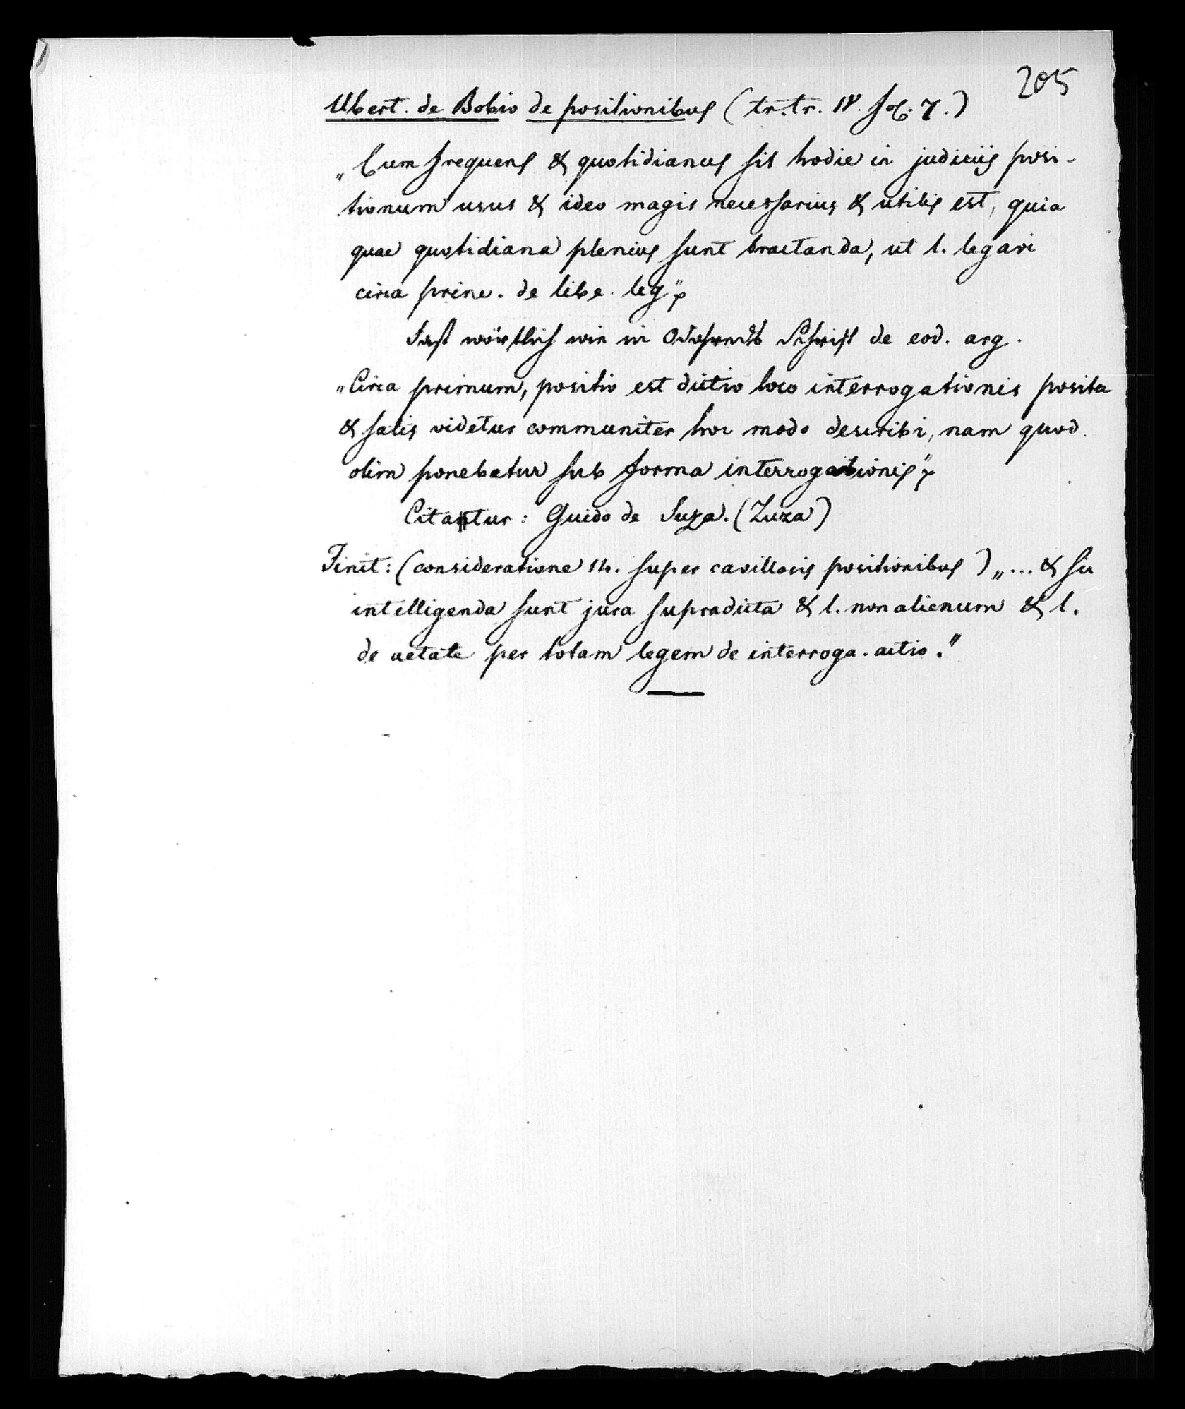 205
Ubert. de Bobio de positionibus (tr. tr. IV. fol. 7.)
„Cum frequens & quotidianus sit hodie in judiciis posi-
tionum usus & ideo magis necessarius & utilis est, quia
quae quotidiana plenius sunt tractanda, ut l. legavi
circa princ. de libe. leg"
Fast wörtlich wie in Schrift de eod. arg.
„Circa primum, positio est dictio loco interrogationis posita
& satis videtur communiter hoc modo describi, nam quod
olim ponebatur sub forma interrogationis"
Citantur: Guido de Suza. (Zuza)
Finit: (consideratione 14. super cavillosis positionibus) „... & sic
intelligenda sunt jura supradicta & l. non alienum & l.
de aetate per totam legem de interroga. actio."